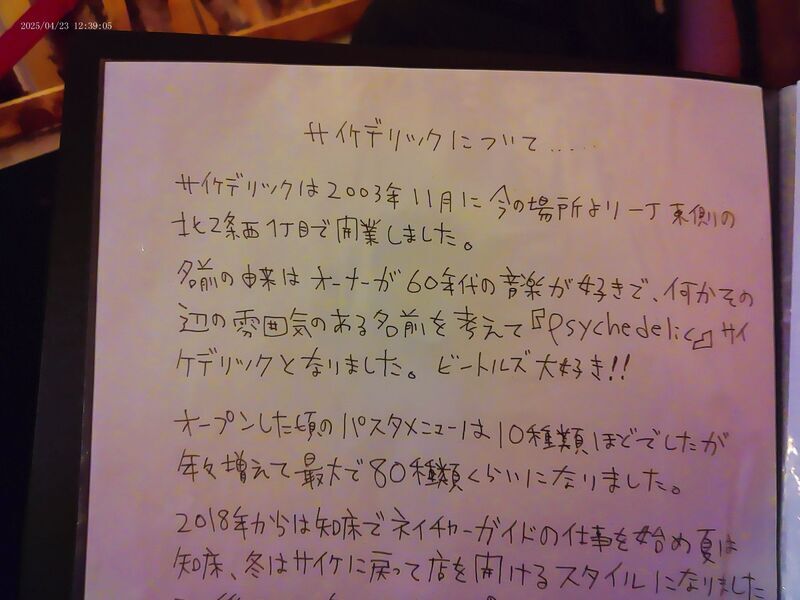 2025/04/23 12:39:05
サイケデリックについて.....
サイケデリックは2003年11月に今の場所より一丁東側の
北2条西1丁目で開業しました。
名前の由来はオーナーが60年代の音楽が好きで、何かその
辺の雰囲気のある名前を考えて『Psychedelic』サイ
ケデリックとなりました。ビートルズ大好き!!
オープンした頃のパスタメニューは10種類ほどでしたが
年々増えて最大で80種類くらいになりました。
2018年からは知床でネイチャーガイドの仕事を始め夏は
知床、冬はサイケに戻って店を開けるスタイルになりました